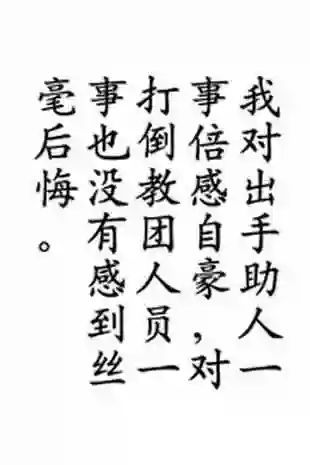 我对出手助人一
事倍感自豪，对
打倒教团人员一
事也没有感到丝
毫后悔。